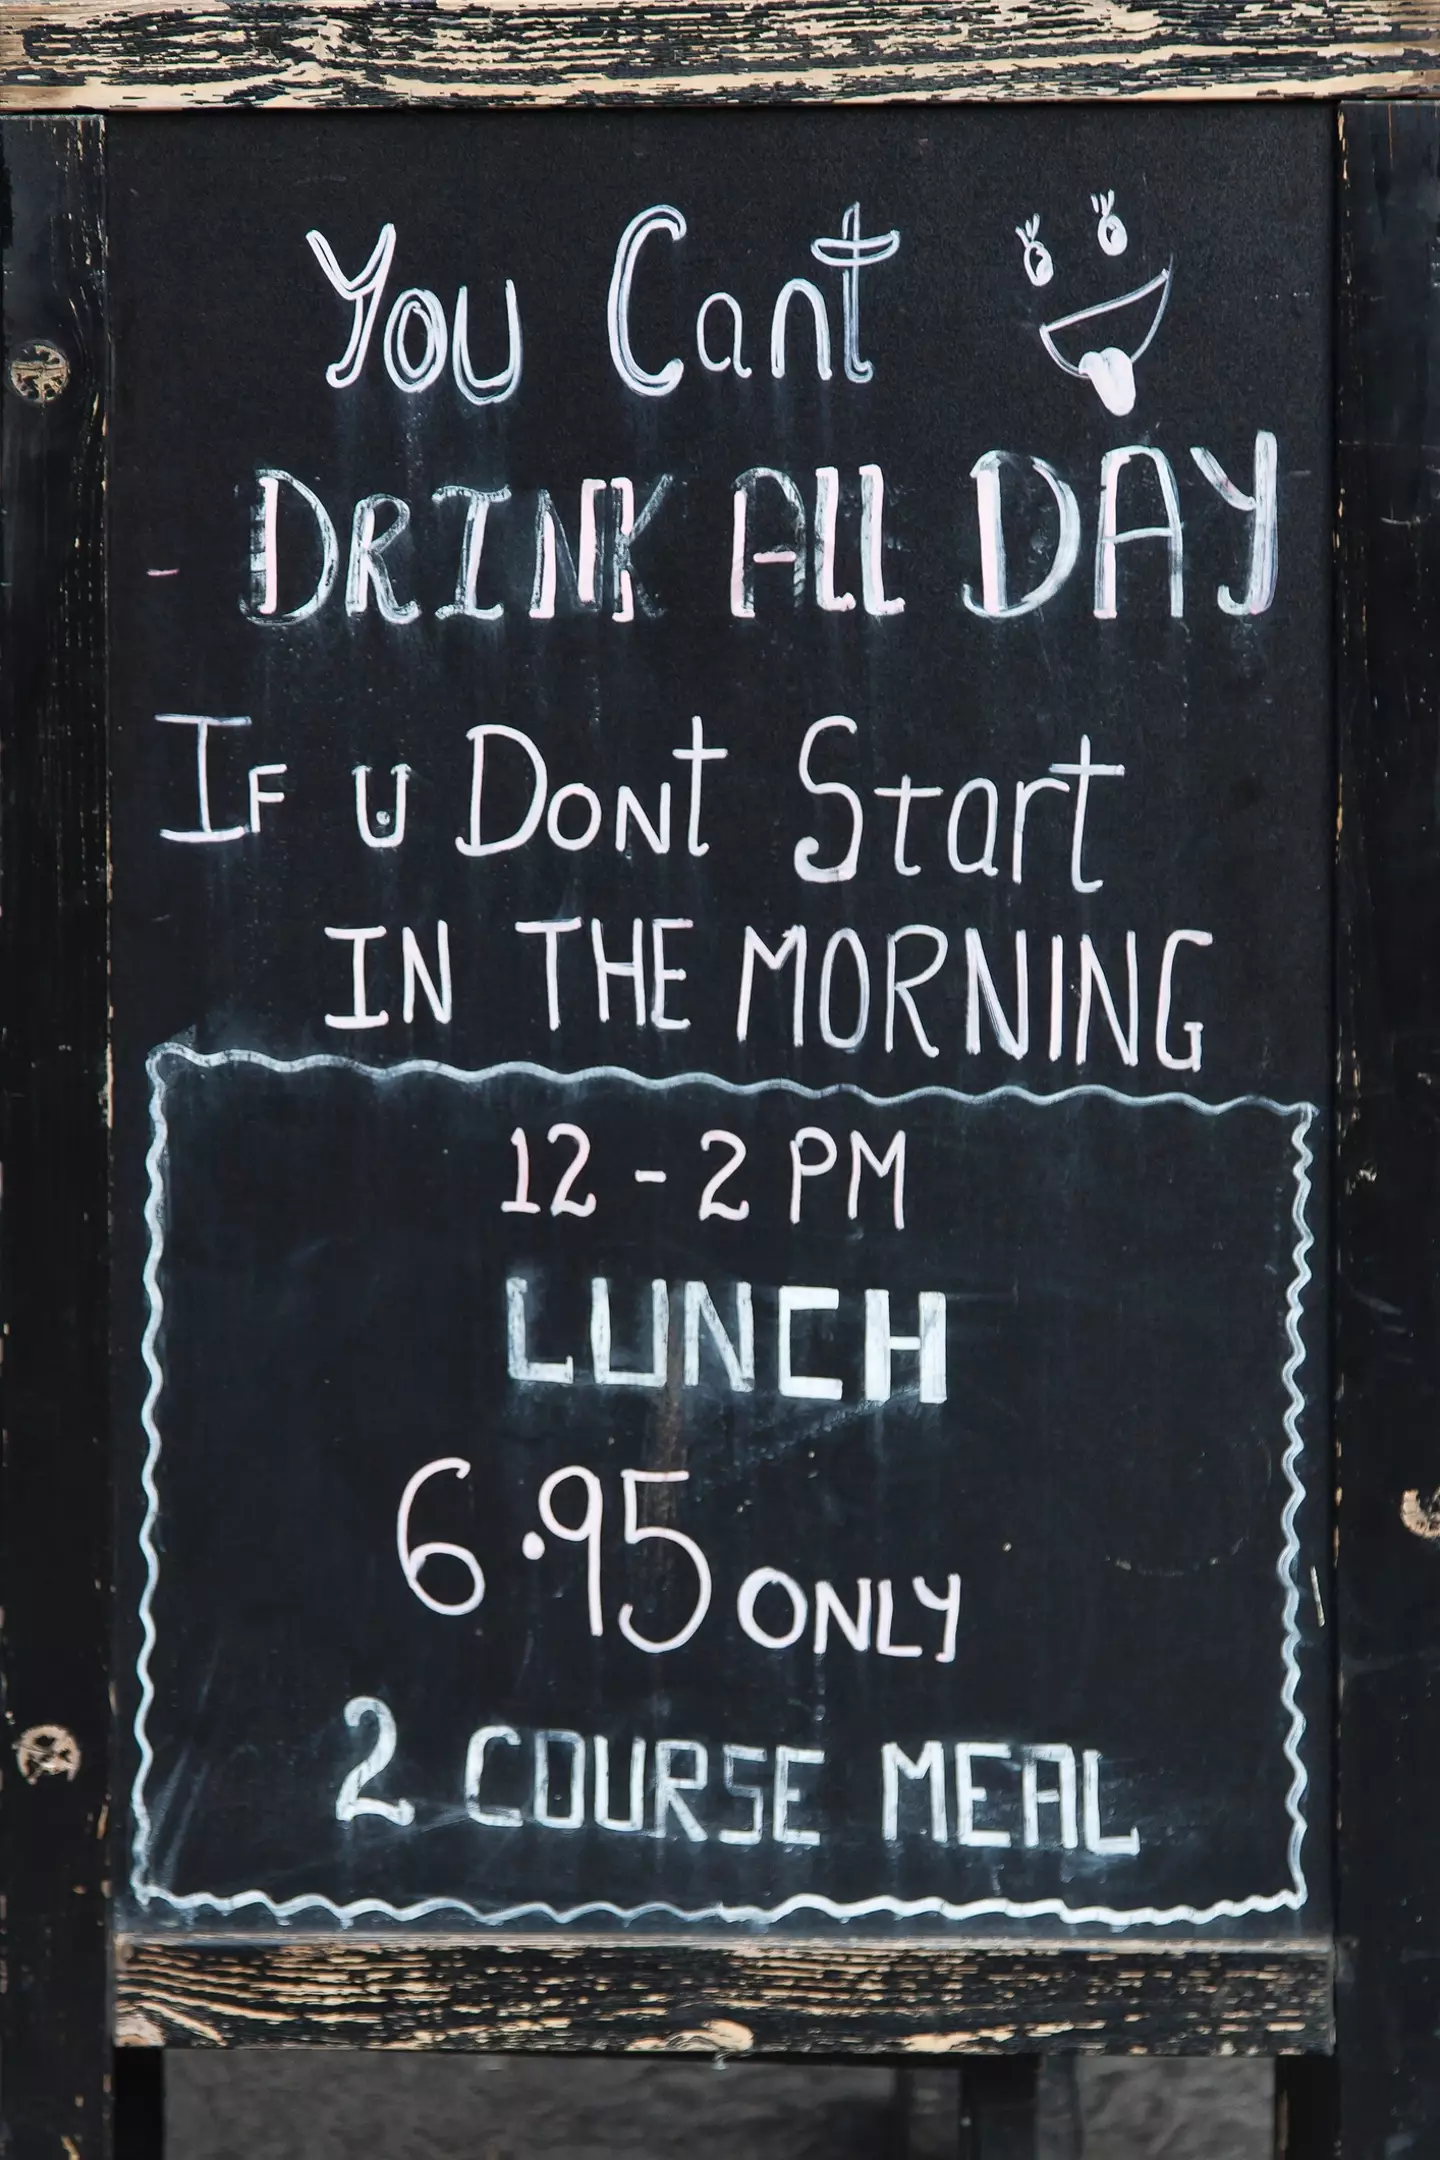 You Cant
DRINK ALL DAY
IF U DONt Start
IN THE MORNING
12 - 2 PM
LUNCH
6.95 ONLY
2 COURSE MEAL